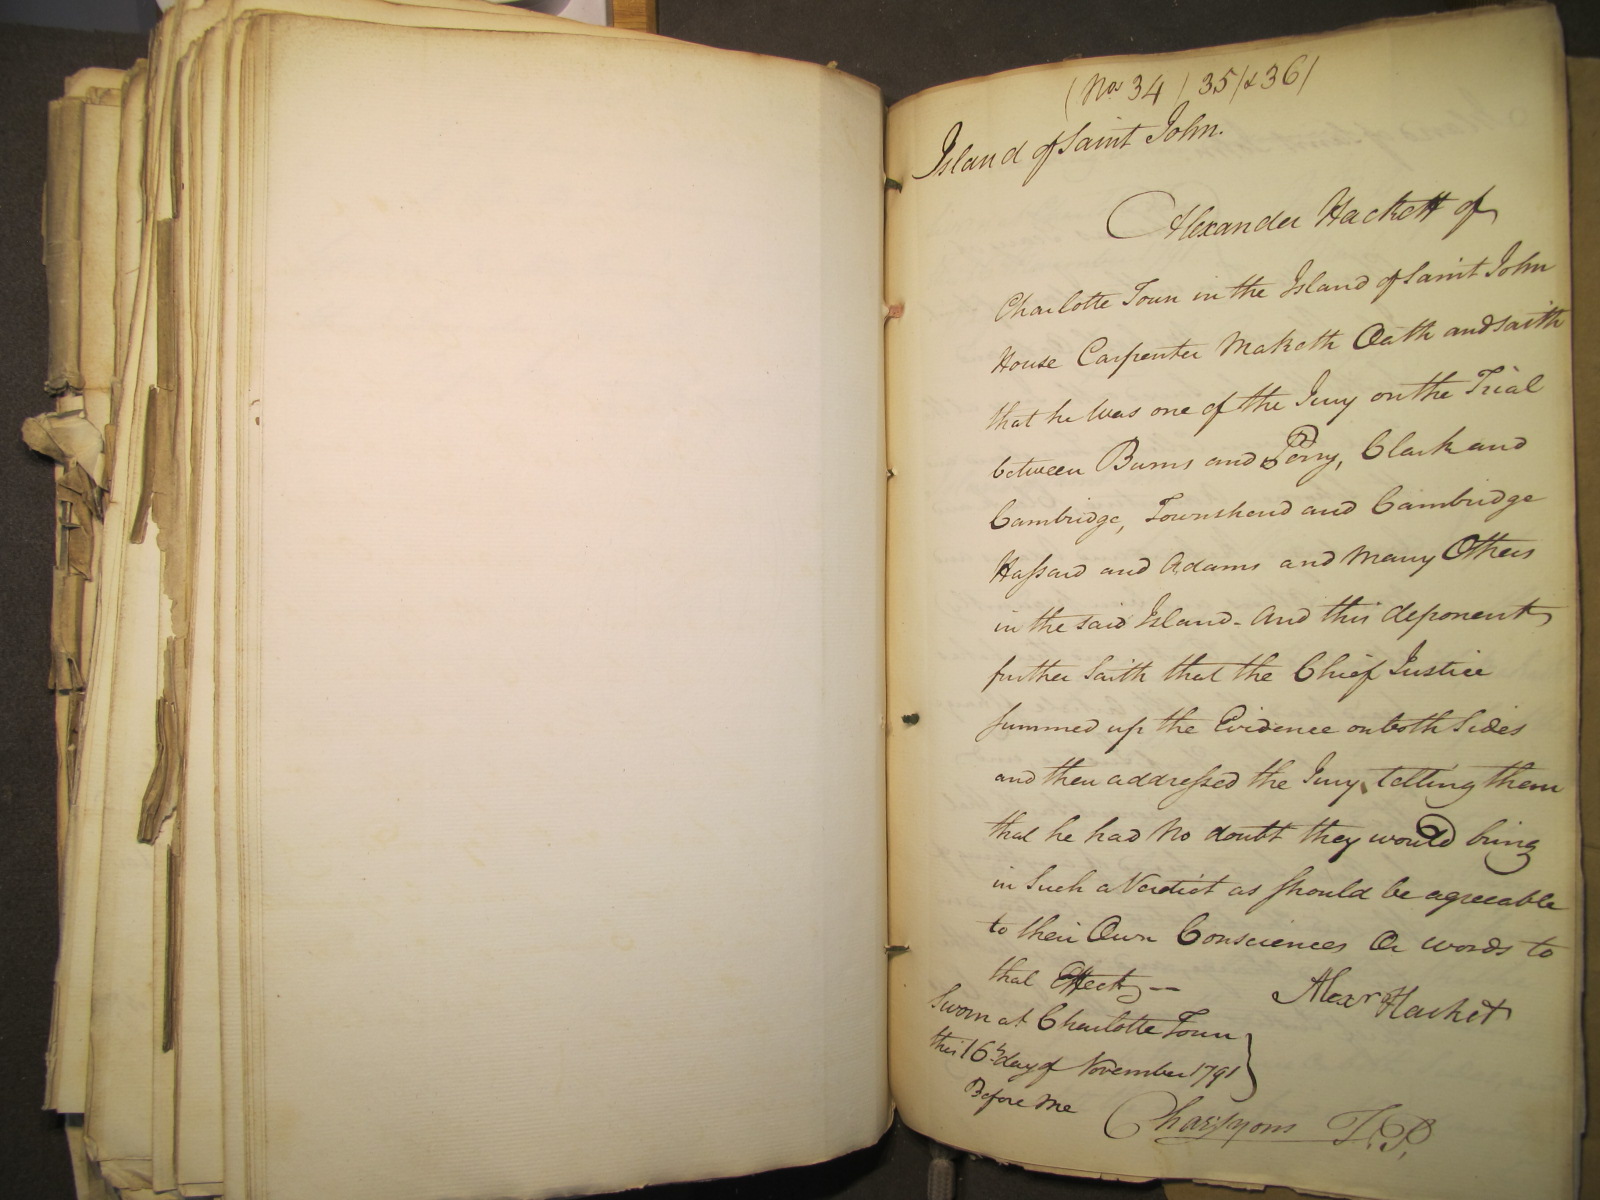 (Nos 34 / 35/ & 36/
Island of Saint John.
Alexander Hackett of
Charlotte Town in the Island of Saint John
House Carpenter Maketh Oath and saith
that he Was one of the Jury on the Trial
between Burns and Perry, Clark and
Cambridge, Townshend and Cambridge
Haſsard and Adams and Many Others
in the said Island - And this deponent
further Saith that the Chief Justice
summed up the Evidence on both Sides
and then addreſsed the Jury, telling them
that he had No doubt they would bring
in Such a Verdict as should be agreeable
to their Own Consciences Or words to
that Effect, --
Alexr Hacket
Sworn at Charlotte Town
this 16th day of November 1791
Before Me
J.P.